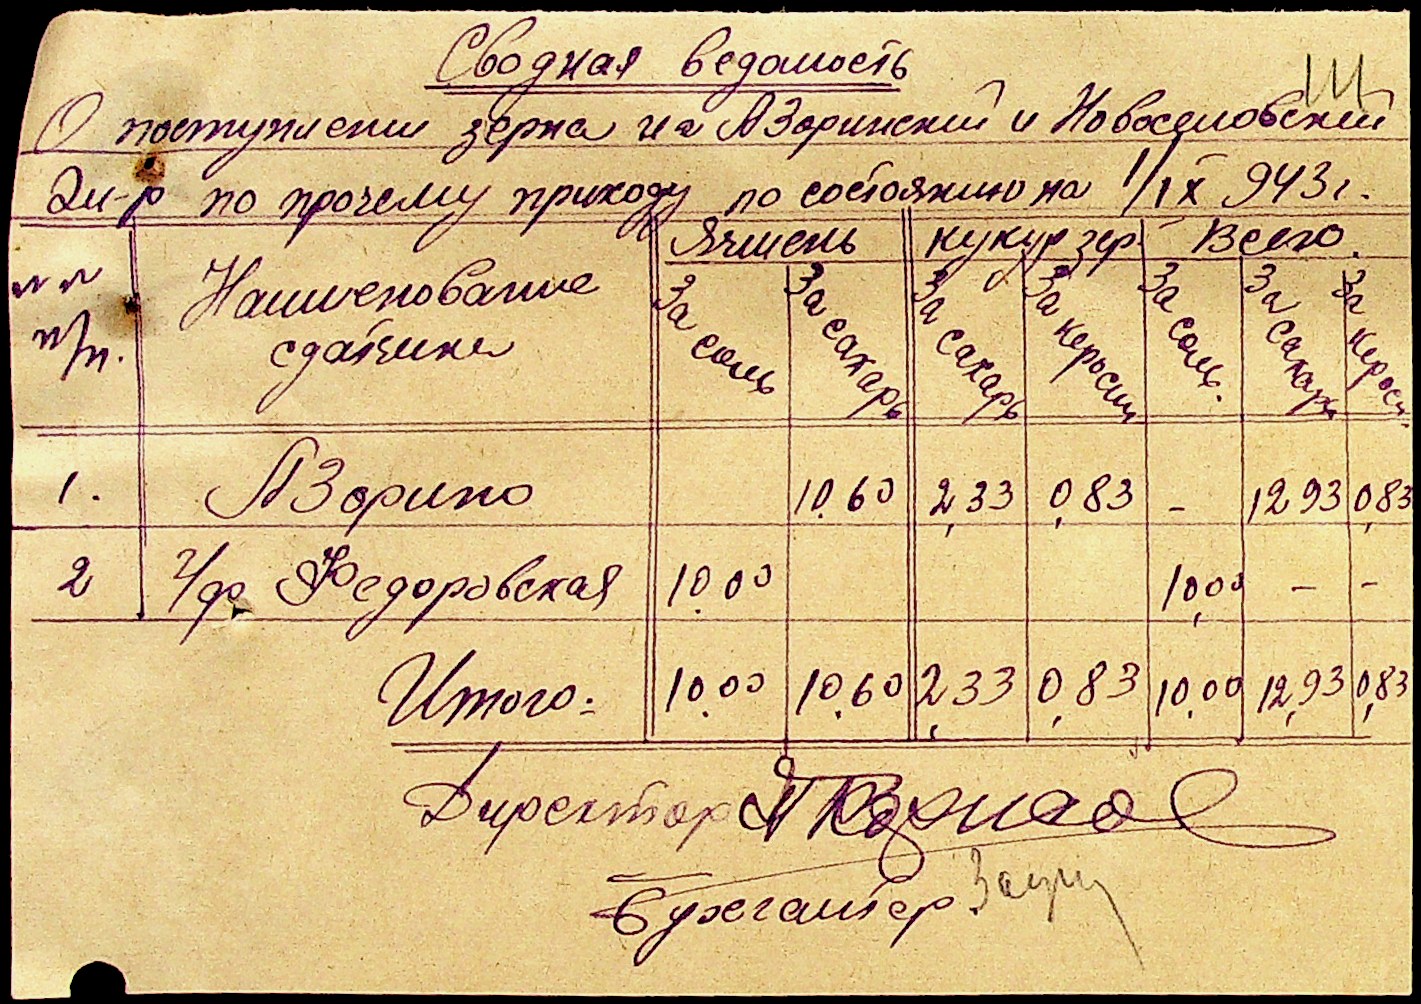 Сводная ведомость
О поступлении зерна на Азоринский и Новоселовский
Эл-р по прочему приходу по состоянию на 1/IX 943 г.
№ № п/п. Наименование сдатчика Ячмень кукур зер. Всего.
За соль За сахарь За сахарь За керосин За соль. За сахарь За керосин
1. Азорино 10,60 2,33 0,83 - 12,93 0,83
2 Федоровская 10,00 10,00 - -
Итого: 10,00 10,60 2,33 0,83 10,00 12,93 0,83
Директор
Бухгалтер